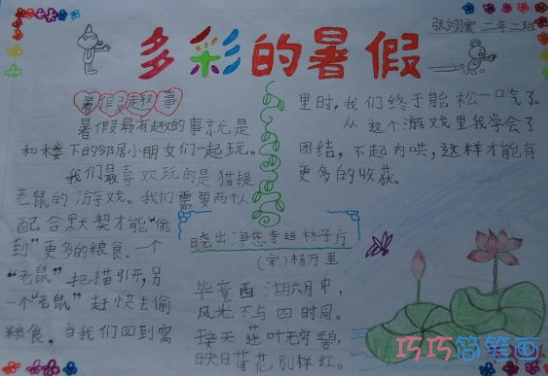 多彩的暑假
张翊雯 二年二班
暑假趣事
暑假最有趣的事就是
和楼下的邻居小朋友们一起玩。
我们最喜欢玩的是猫捉
老鼠的游戏。我们需要两个人
配合默契才能“偷
到”更多的粮食。一个
“老鼠”把猫引开，另
一个“老鼠”赶快去偷
粮食，当我们回到窝
里时，我们终于能松一口气了。
从这个游戏里我学会了
团结，不起内哄，这样才能有
更多的收获。
晓出净慈寺送林子方
（宋）杨万里
毕竟西湖六月中，
风光不与四时同。
接天莲叶无穷碧，
映日荷花别样红。
巧巧简笔画